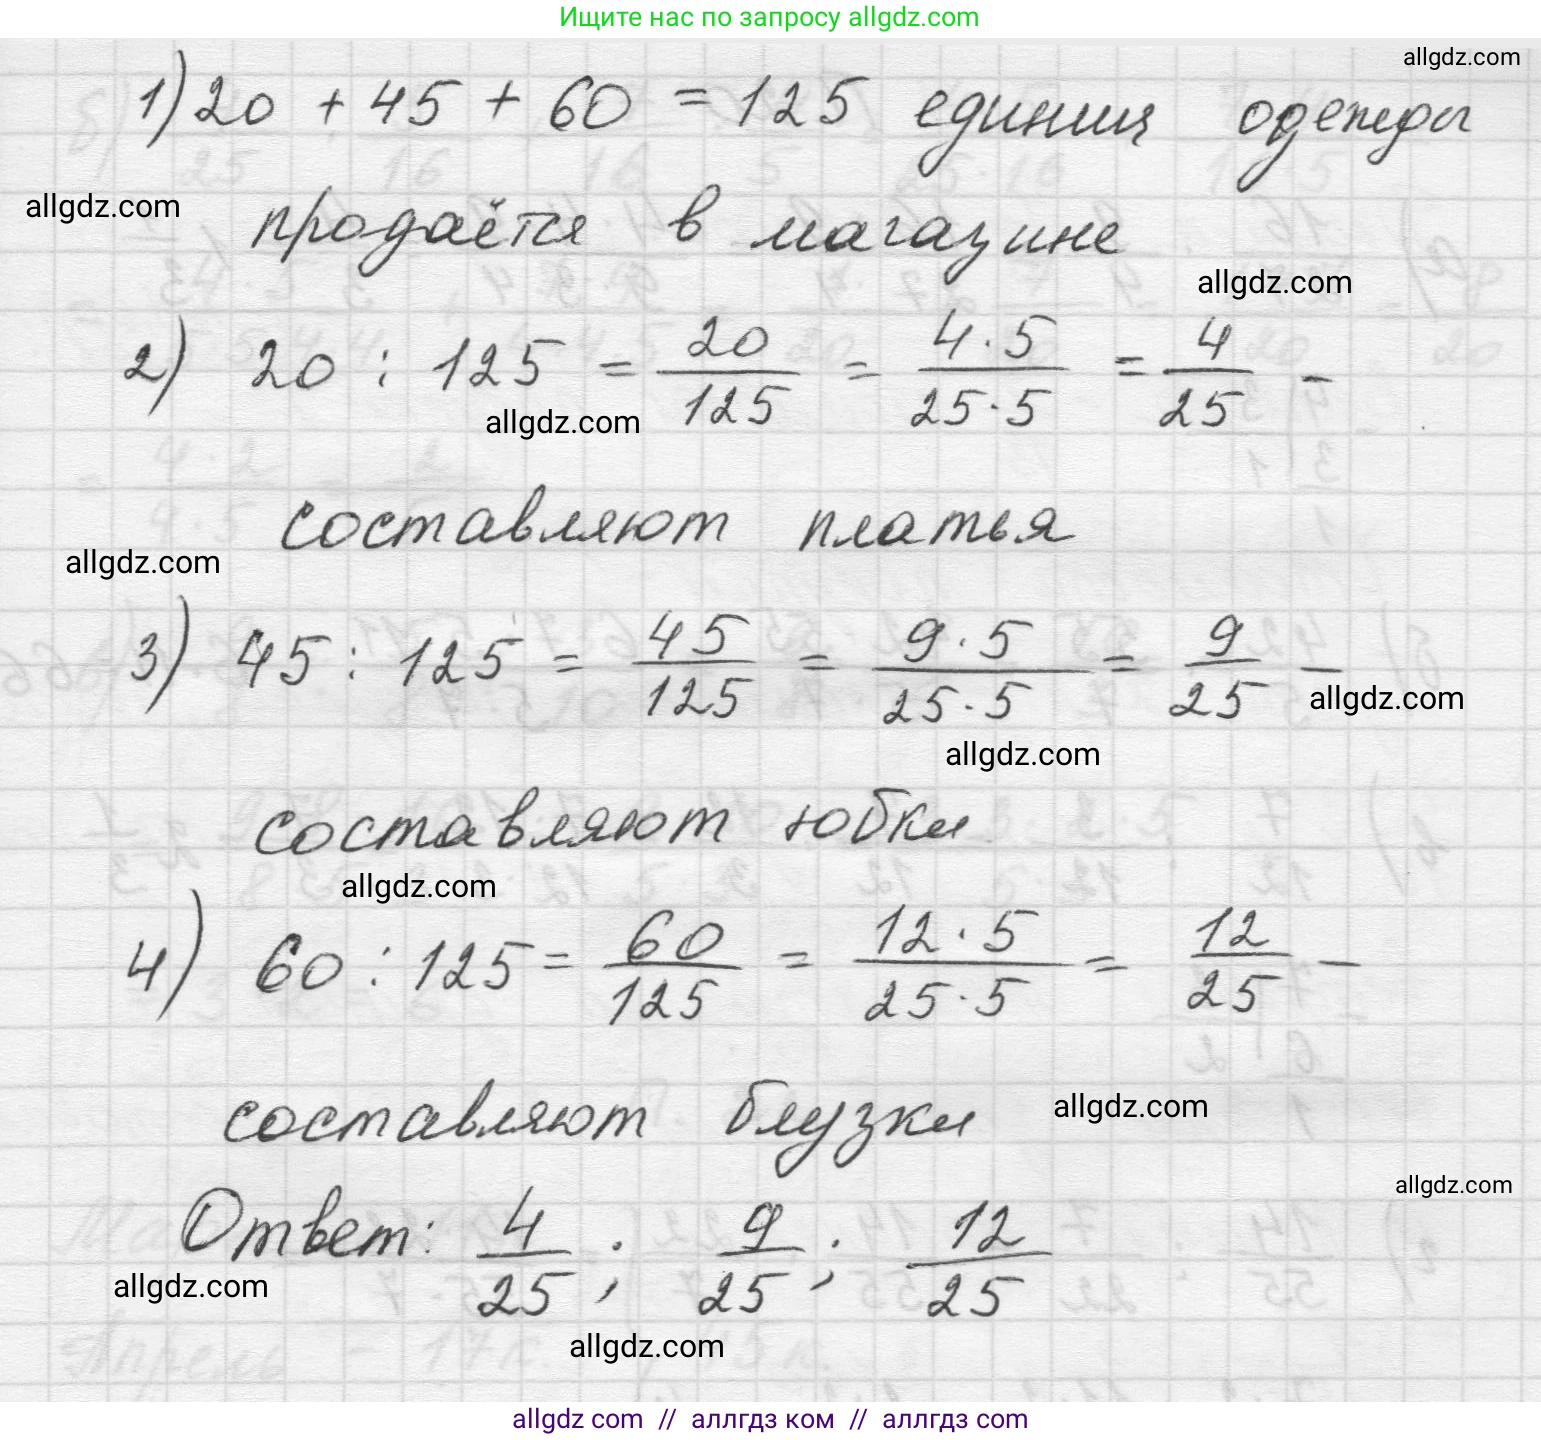 Ищите нас по запросу allgdz.com
allgdz.com
1) 20 + 45 + 60 = 125 единиц одежды
allgdz.com
продаётся в магазине
allgdz.com
2) 20 : 125 = 20/125 = 4·5/25·5 = 4/25 –
allgdz.com
составляют платья
allgdz.com
3) 45 : 125 = 45/125 = 9·5/25·5 = 9/25 –
allgdz.com
allgdz.com
составляют юбки
allgdz.com
4) 60 : 125 = 60/125 = 12·5/25·5 = 12/25 –
составляют блузки
allgdz.com
allgdz.com
Ответ: 4/25 ; 9/25 ; 12/25
allgdz.com
allgdz.com
allgdz com // аллгдз ком // аллгдз com